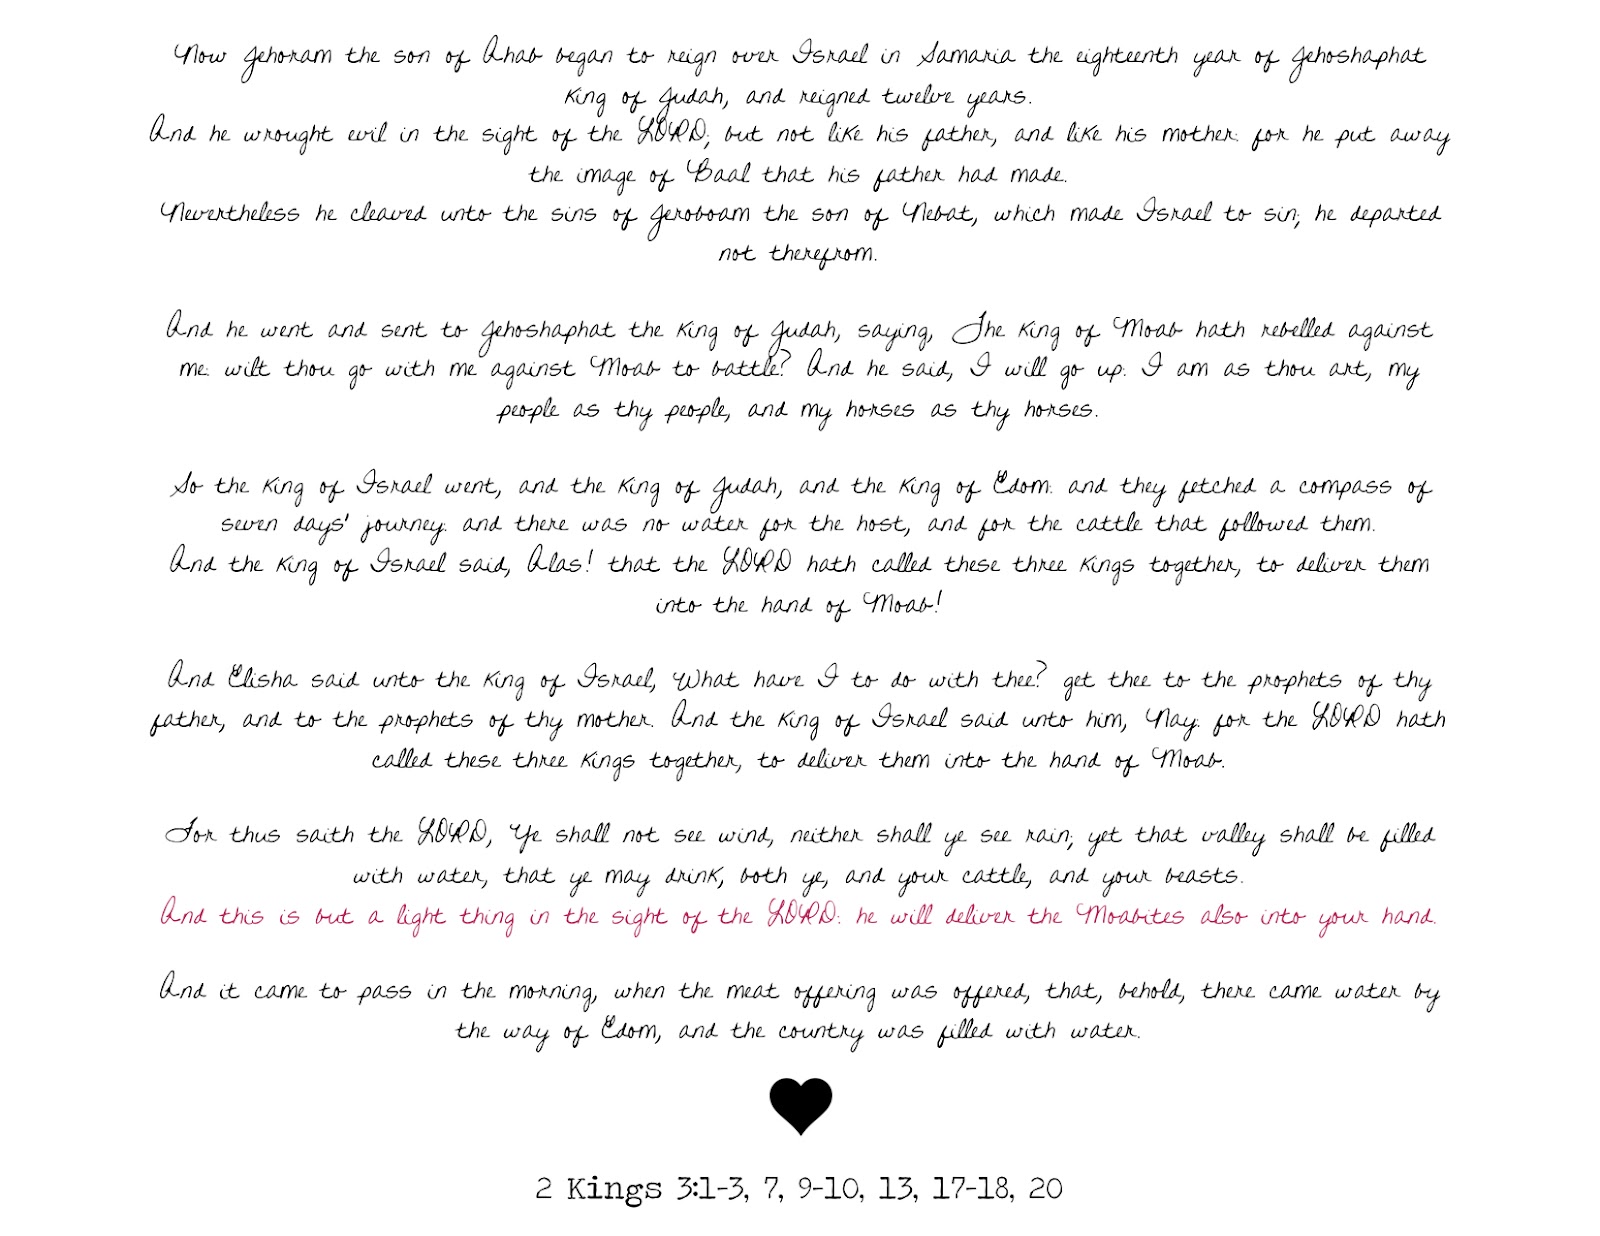 Now Jehoram the son of Ahab began to reign over Israel in Samaria the eighteenth year of Jehoshaphat
king of Judah, and reigned twelve years.
And he wrought evil in the sight of the LORD; but not like his father, and like his mother: for he put away
the image of Baal that his father had made.
Nevertheless he cleaved unto the sins of Jeroboam the son of Nebat, which made Israel to sin; he departed
not therefrom.
And he went and sent to Jehoshaphat the king of Judah, saying, The king of Moab hath rebelled against
me: wilt thou go with me against Moab to battle? And he said, I will go up: I am as thou art, my
people as thy people, and my horses as thy horses.
So the king of Israel went, and the king of Judah, and the king of Edom: and they fetched a compass of
seven days' journey: and there was no water for the host, and for the cattle that followed them.
And the king of Israel said, Alas! that the LORD hath called these three kings together, to deliver them
into the hand of Moab!
And Elisha said unto the king of Israel, What have I to do with thee? get thee to the prophets of thy
father, and to the prophets of thy mother. And the king of Israel said unto him, Nay: for the LORD hath
called these three kings together, to deliver them into the hand of Moab.
For thus saith the LORD, Ye shall not see wind, neither shall ye see rain; yet that valley shall be filled
with water, that ye may drink, both ye, and your cattle, and your beasts.
And this is but a light thing in the sight of the LORD: he will deliver the Moabites also into your hand.
And it came to pass in the morning, when the meat offering was offered, that, behold, there came water by
the way of Edom, and the country was filled with water.
2 Kings 3:1-3, 7, 9-10, 13, 17-18, 20